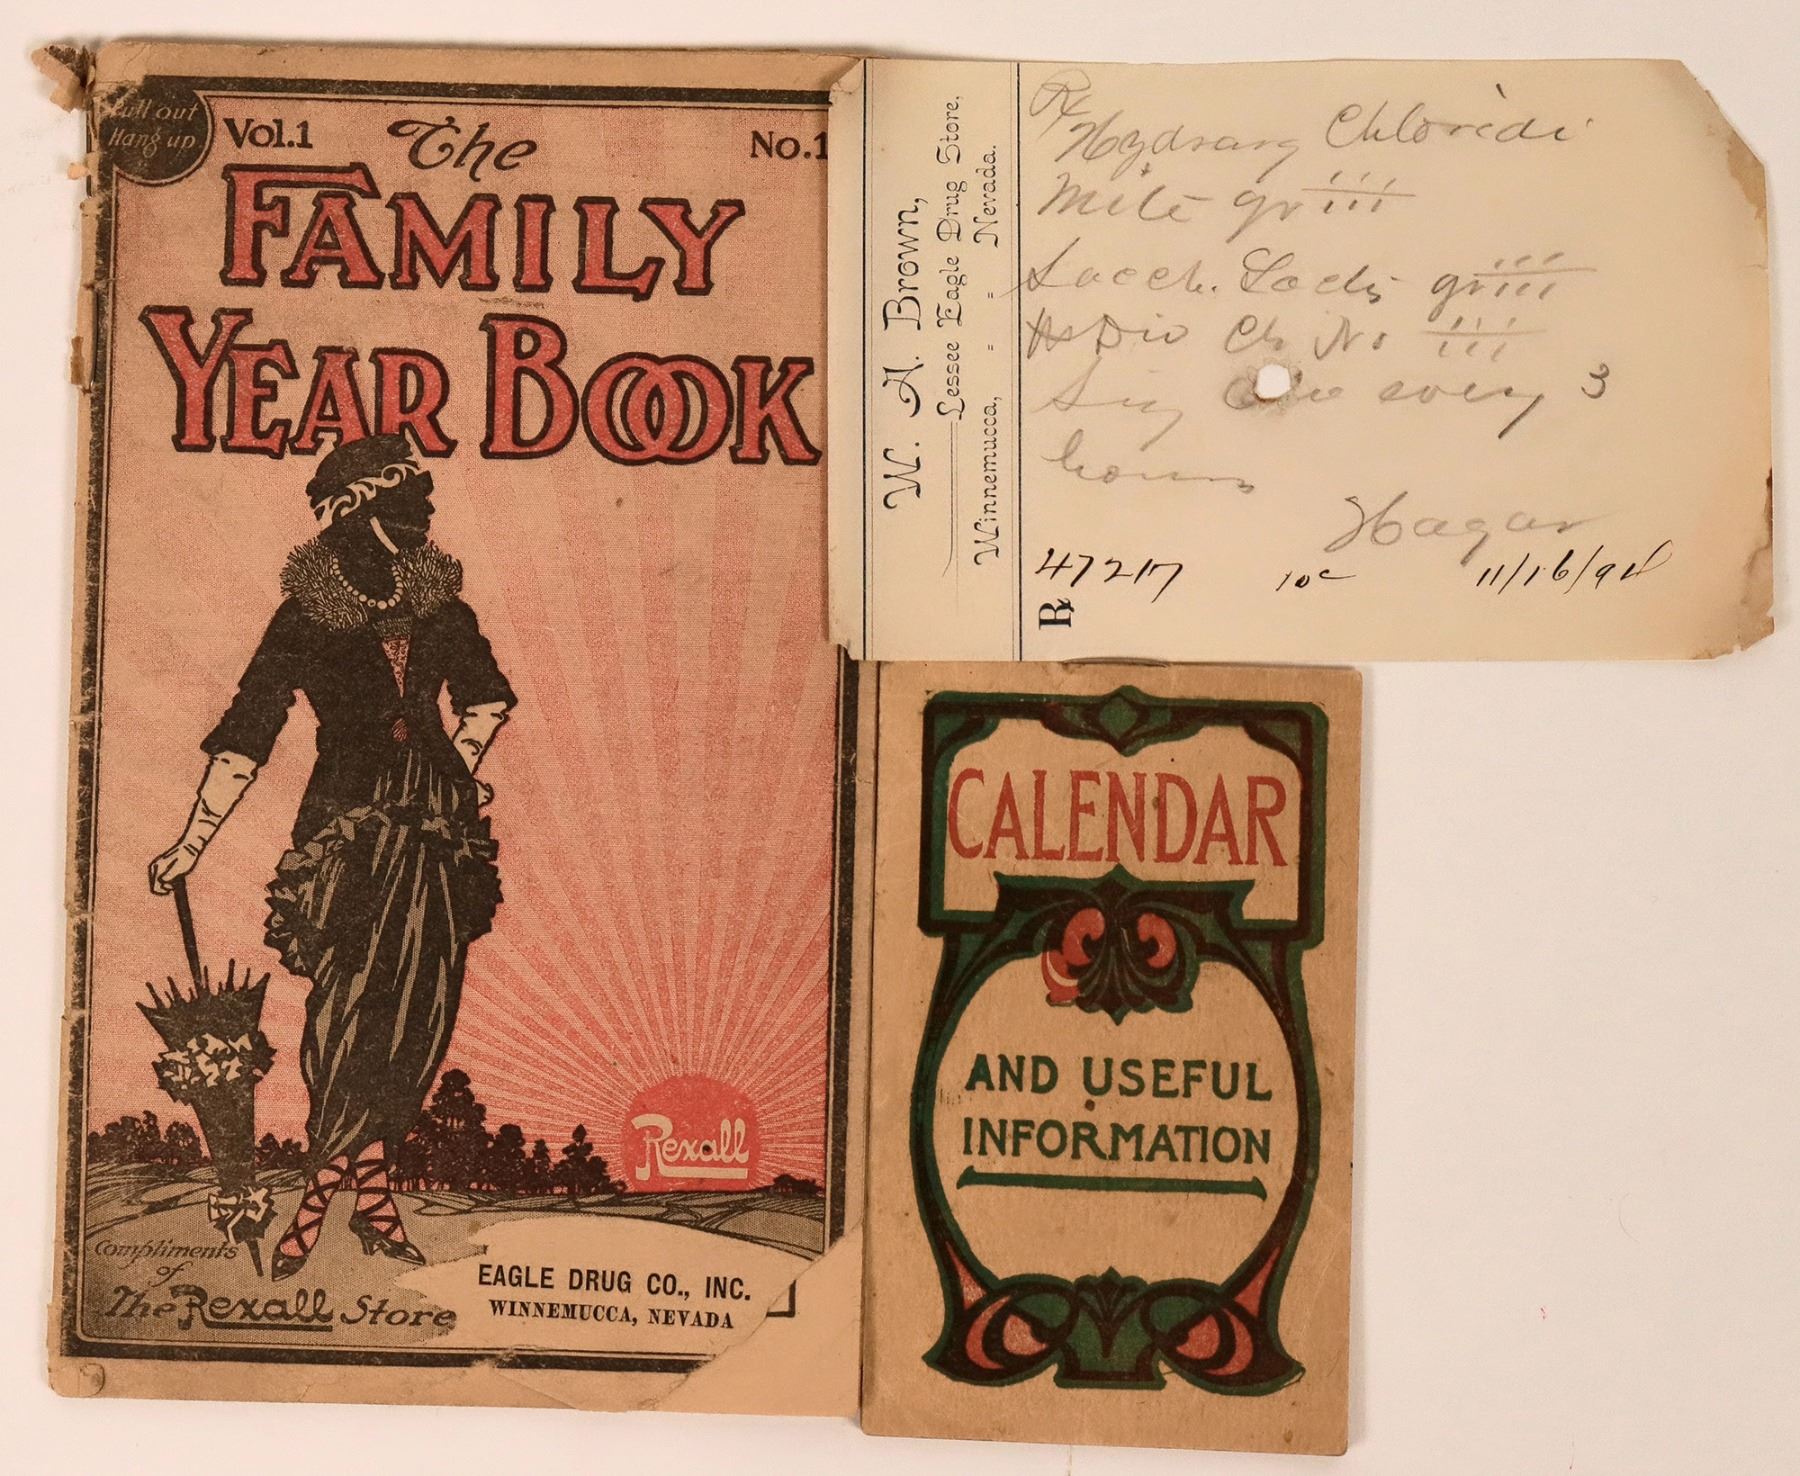 Pull out
Hang up
Vol.1
The
No.1
FAMILY
YEAR BOOK
Rexall
Compliments
of
The Rexall Store
EAGLE DRUG CO., INC.
WINNEMUCCA, NEVADA
W. A. Brown,
Lessee Eagle Drug Store,
Winnemucca, " " Nevada.
Rx
Hydrarg Chloridi
Mite gr iii
Sacch. Lactis gr iii
Div Ch No iii
Sig One every 3
hours
Hagar
47217 10c 11/16/94
Rx
CALENDAR
AND USEFUL
INFORMATION